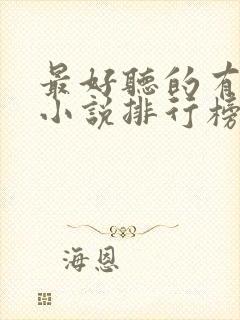 最好聽的有
小說排行榜
海恩